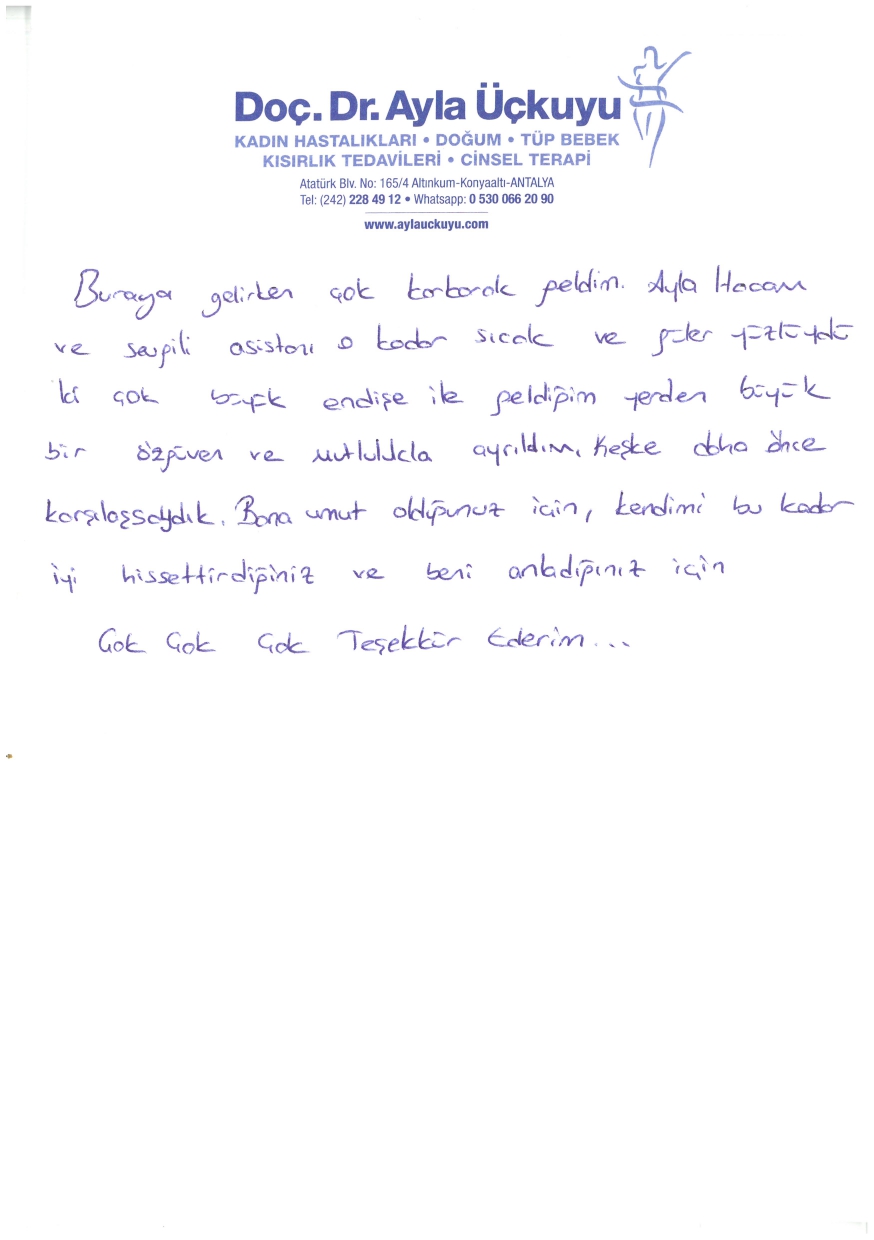 Doç. Dr. Ayla Üçkuyu
KADIN HASTALIKLARI • DOĞUM • TÜP BEBEK
KISIRLIK TEDAVİLERİ • CİNSEL TERAPİ
Atatürk Blv. No: 165/4 Altınkum-Konyaaltı-ANTALYA
Tel: (242) 228 49 12 • Whatsapp: 0 530 066 20 90
www.aylauckuyu.com
Buraya gelirken çok korkarak geldim. Ayla Hocam
ve sevgili asistanı o kadar sıcak ve güler yüzlüydü
ki çok büyük endişe ile geldiğim yerden büyük
bir özgüven ve mutlulukla ayrıldım. Keşke daha önce
karşılaşsaydık. Bana umut olduğunuz için, kendimi bu kadar
iyi hissettirdiğiniz ve beni anladığınız için
Çok Çok Çok Teşekkür Ederim...